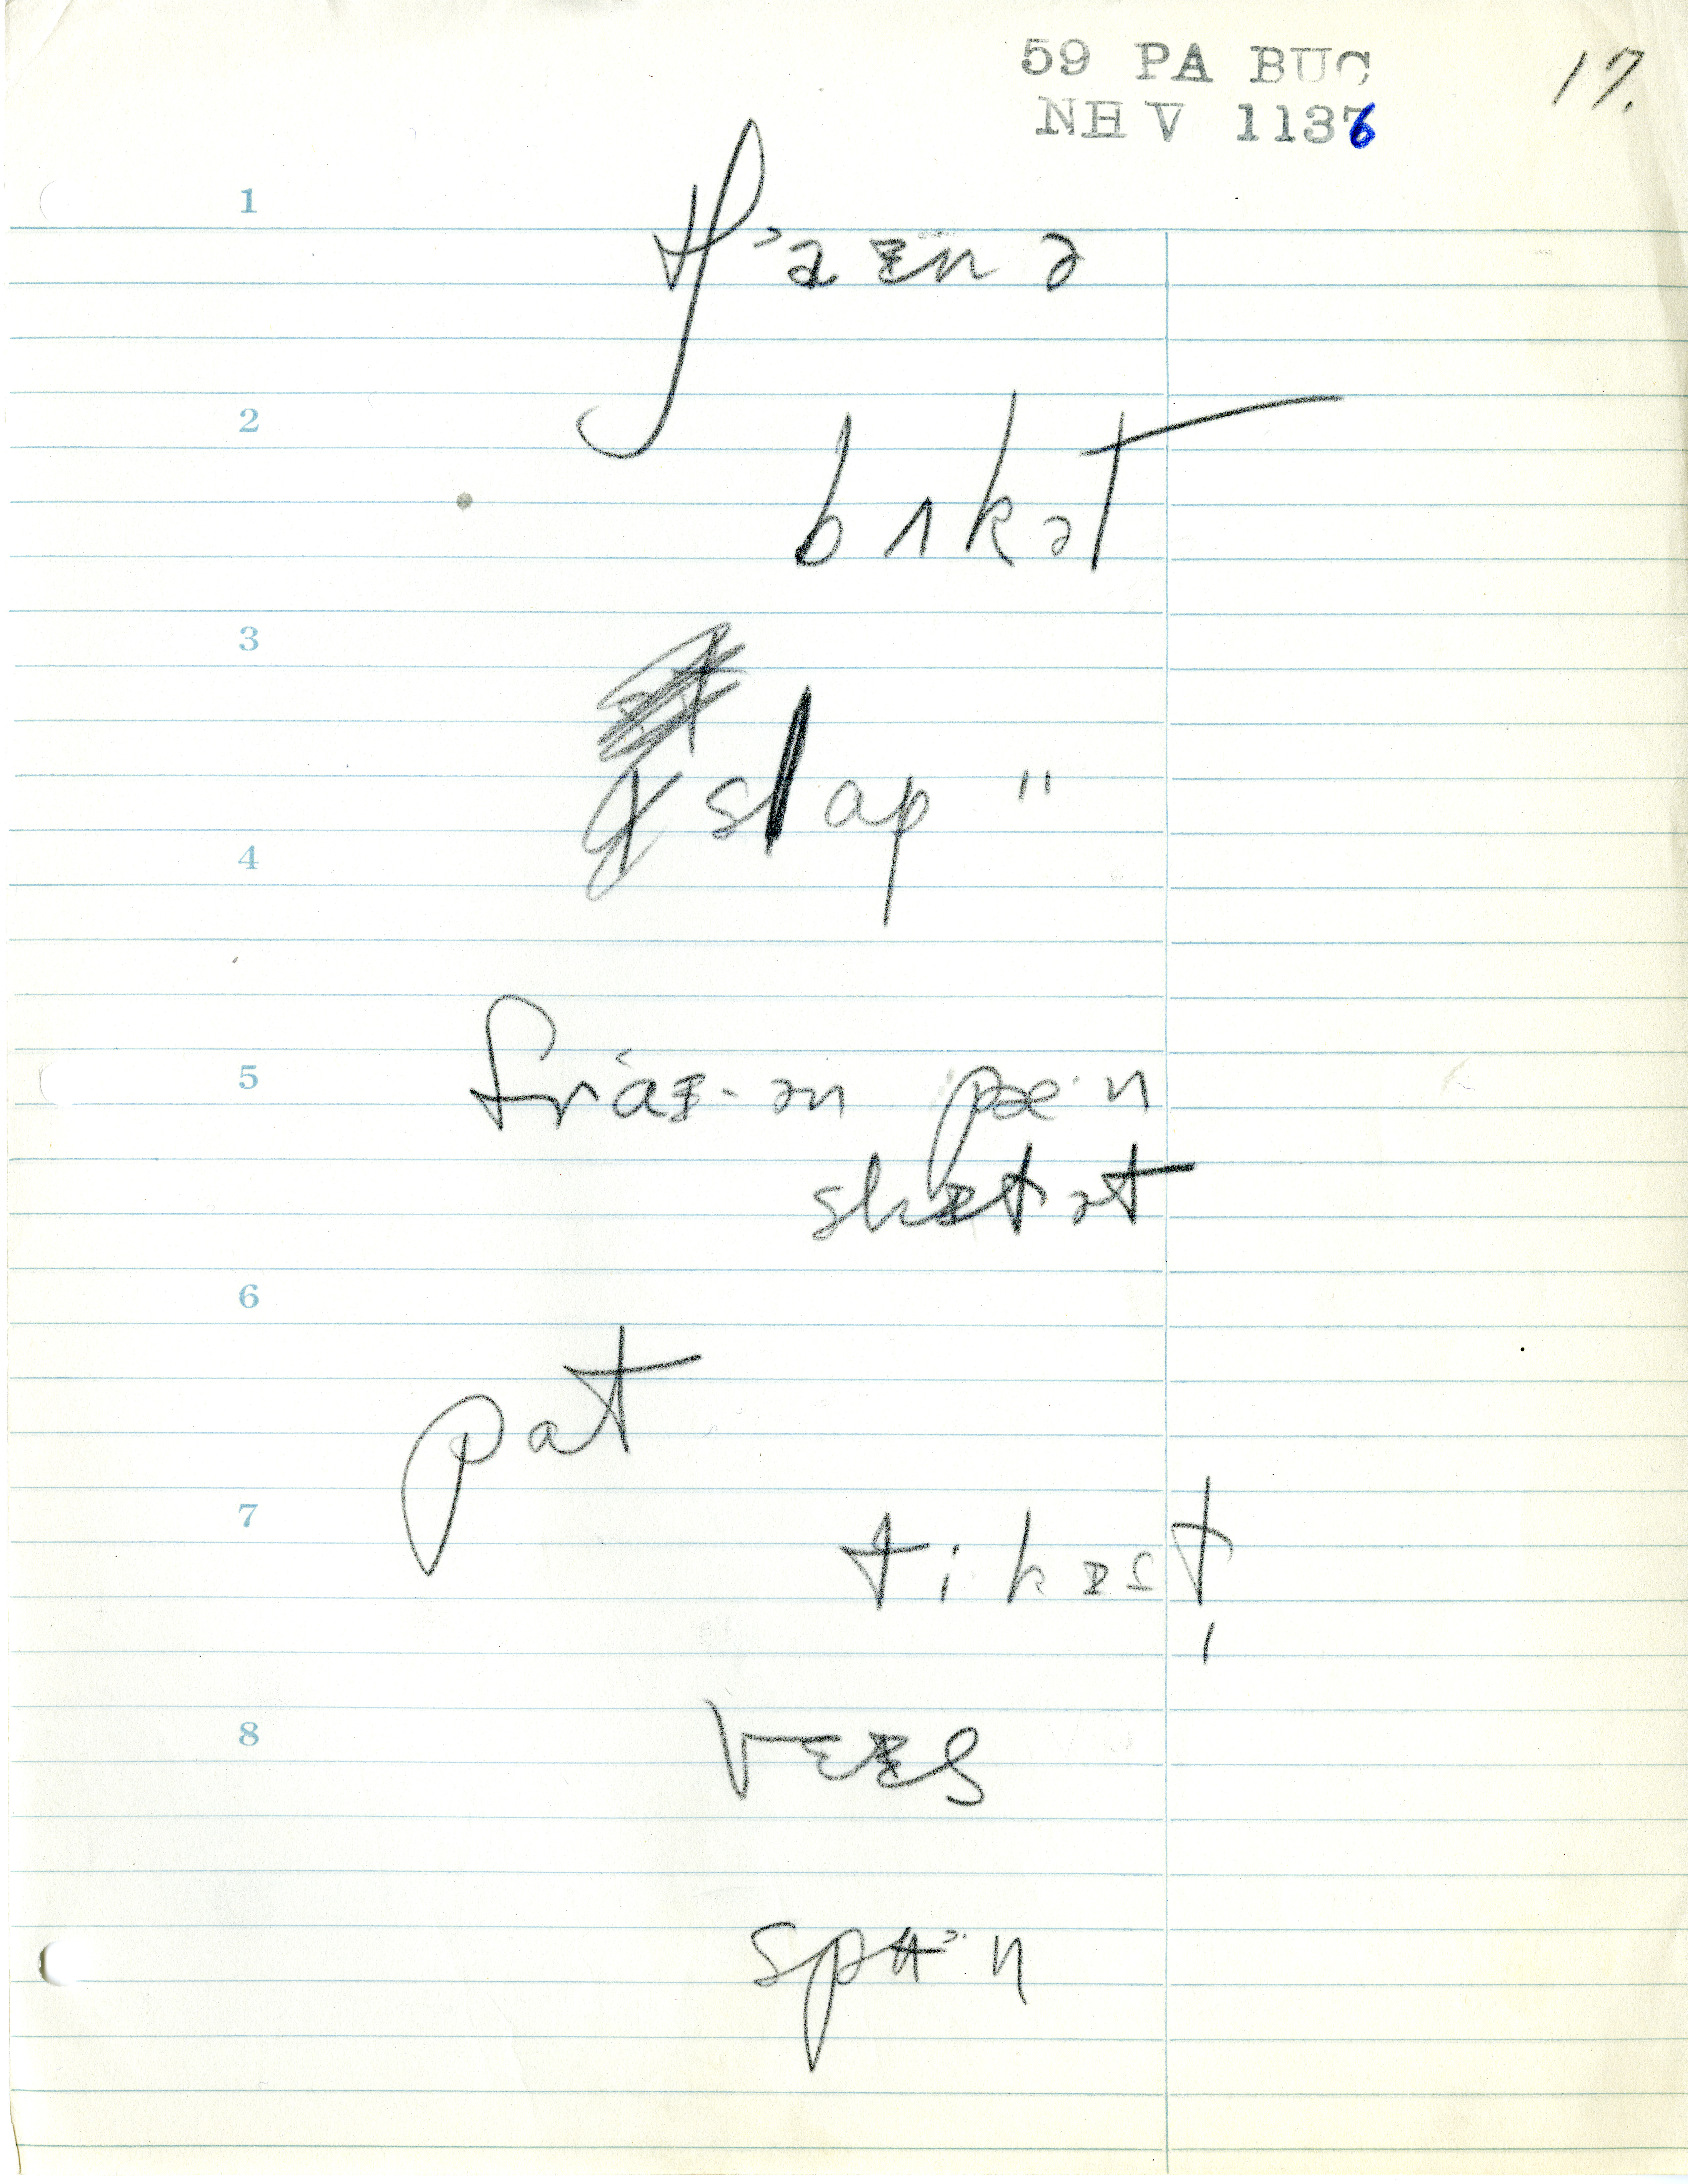 59 PA BUC
NH V 1136
17.
1
tʃ˃aɪnə
2
bʌkət
3
slap "
4
fraɪ-ən pæ·n
5
skɪtət
6
pat
7
tikɪst
8
vɛɪs
spu˃·n